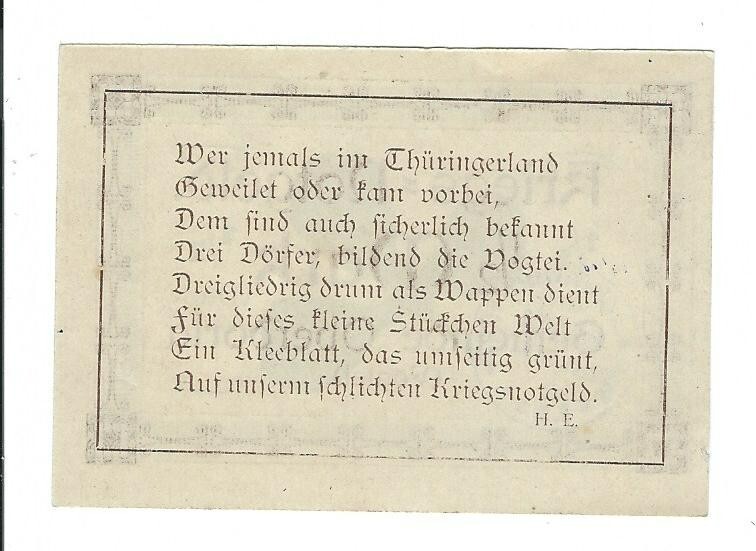 Wer jemals im Thüringerland
Geweilet oder kam vorbei,
Dem sind auch sicherlich bekannt
Drei Dörfer, bildend die Vogtei.
Dreigliedrig drum als Wappen dient
Für dieses kleine Stückchen Welt
Ein Kleeblatt, das umseitig grünt,
Auf unserm schlichten Kriegsnotgeld.
H. E.